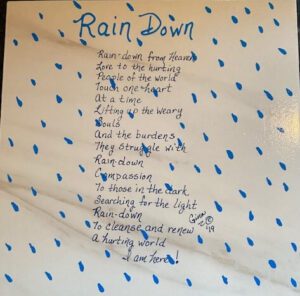 Rain Down
Rain-down from Heaven
Love to the hurting
People of the world
Touch one heart
At a time
Lifting up the weary
Souls
And the burdens
They struggle with
Rain-down
Compassion
To those in the dark
Searching for the light
Rain-down
To cleanse and renew
A hurting world
I am here!
©
'19